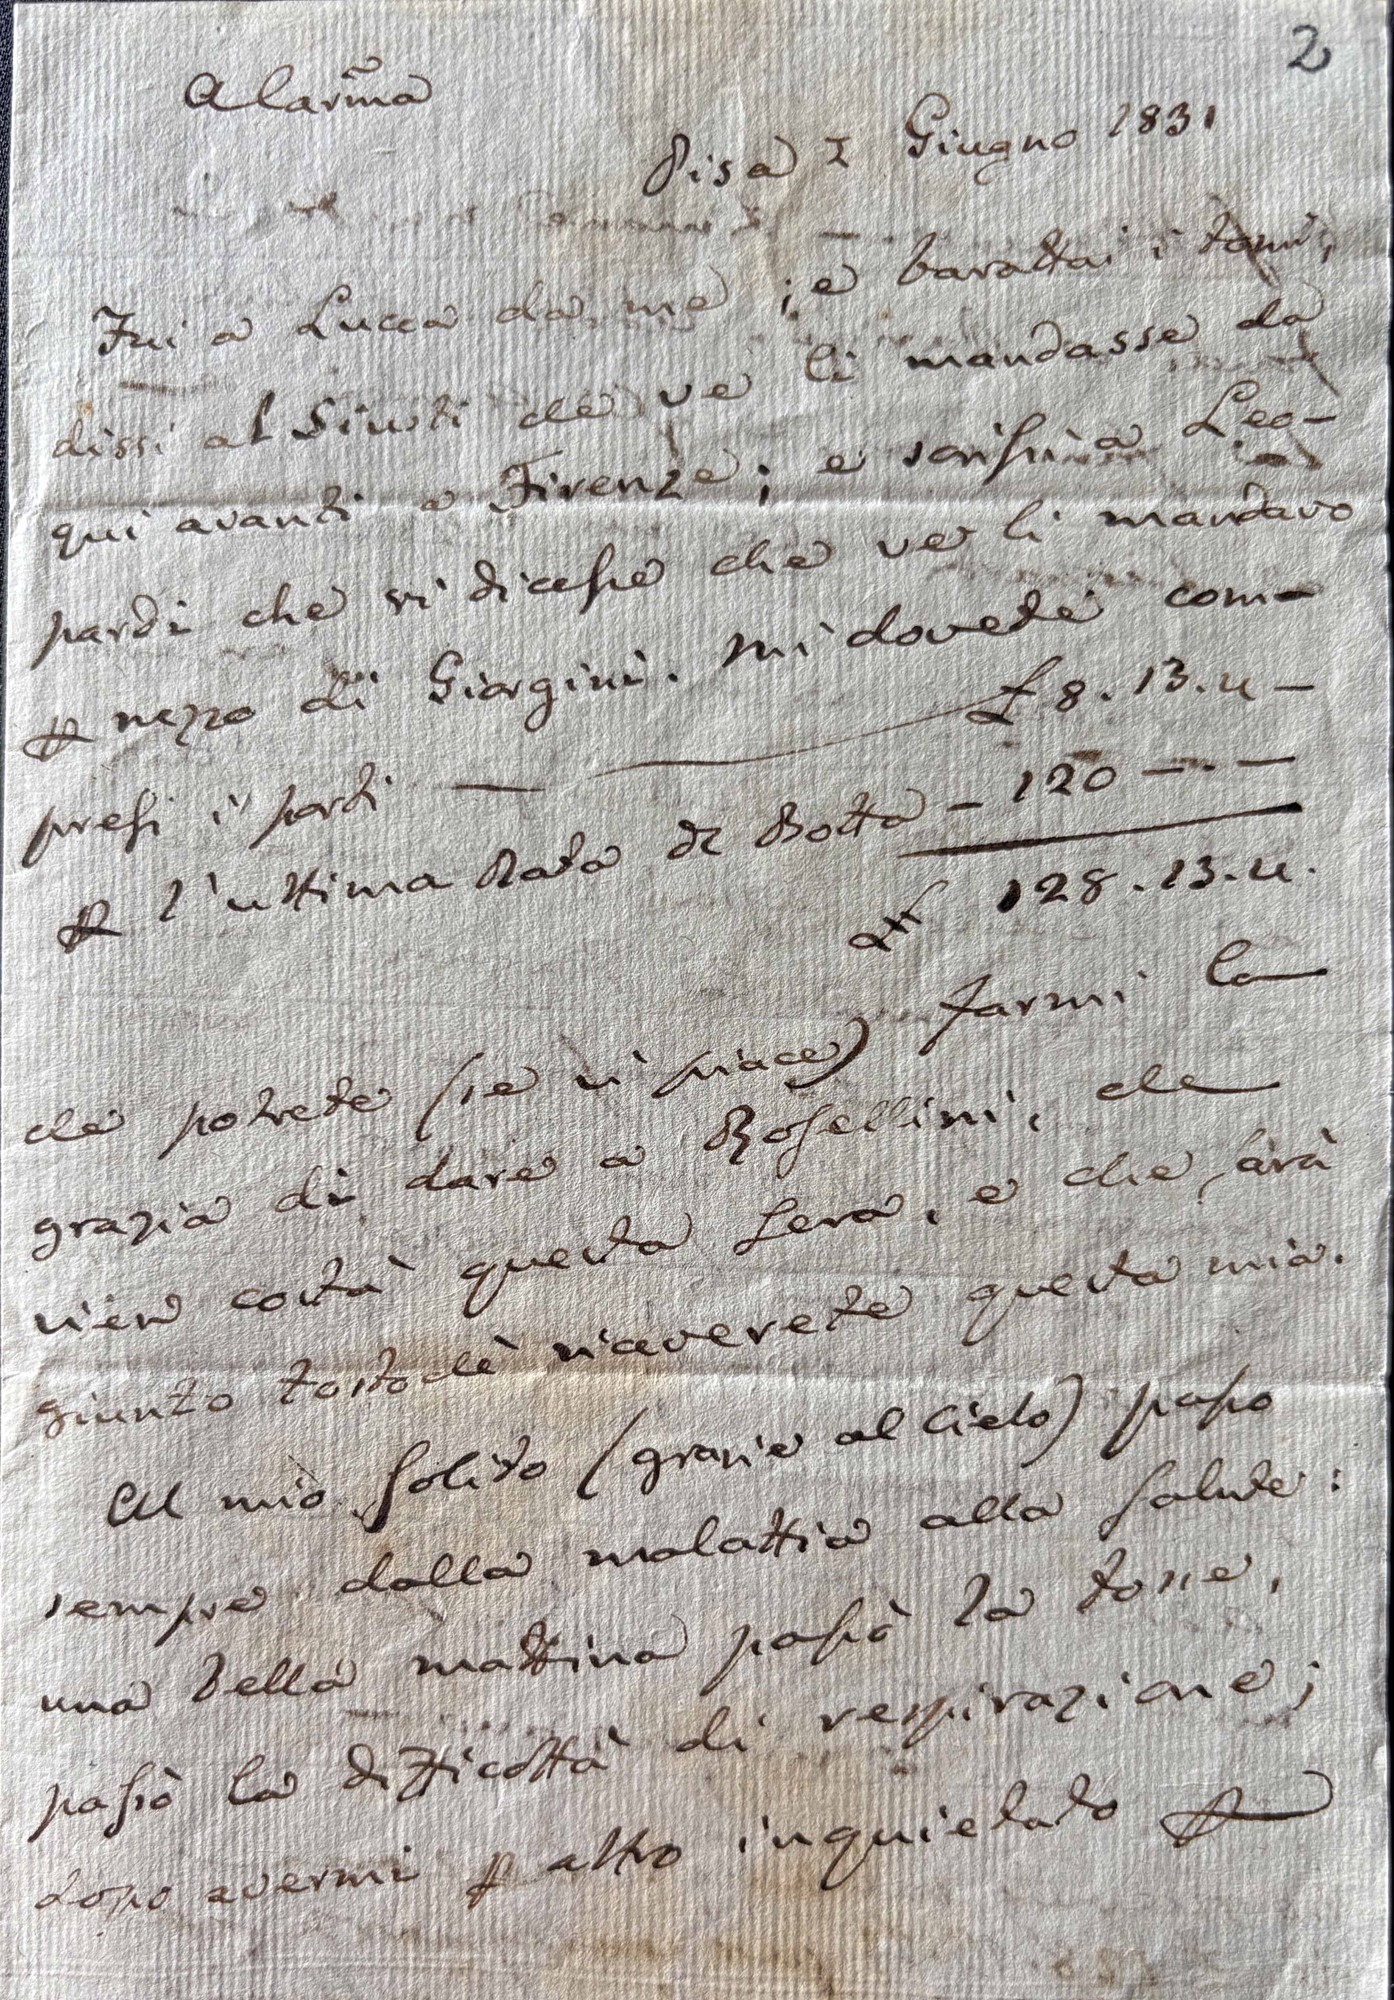 2
Pisa 1 Giugno 1831
Fui a Lucca da me; e barattai i tomi,
dissi al Giusti che ve li mandasse da
qui avanti a Firenze; e scrissi a Leo-
pardi che vi dicesse che ve li mandavo
p mezzo di Giorgini. Mi dovete com-
presi i pardi — £ 8.13.4 —
p l'ultima Rata di Botta — 120 — . —
128.13.4.
che potrete (se vi piace) farmi la
grazia di dare a Rosellini, che
vien costà questa sera, e che sarà
giunto tosto che riceverete questa mia.
Al mio solito (grazie al Cielo) passo
sempre dalla malattia alla salute:
una bella mattina passò la tosse,
passò la difficoltà di respirazione;
dopo avermi p altro inquietato p